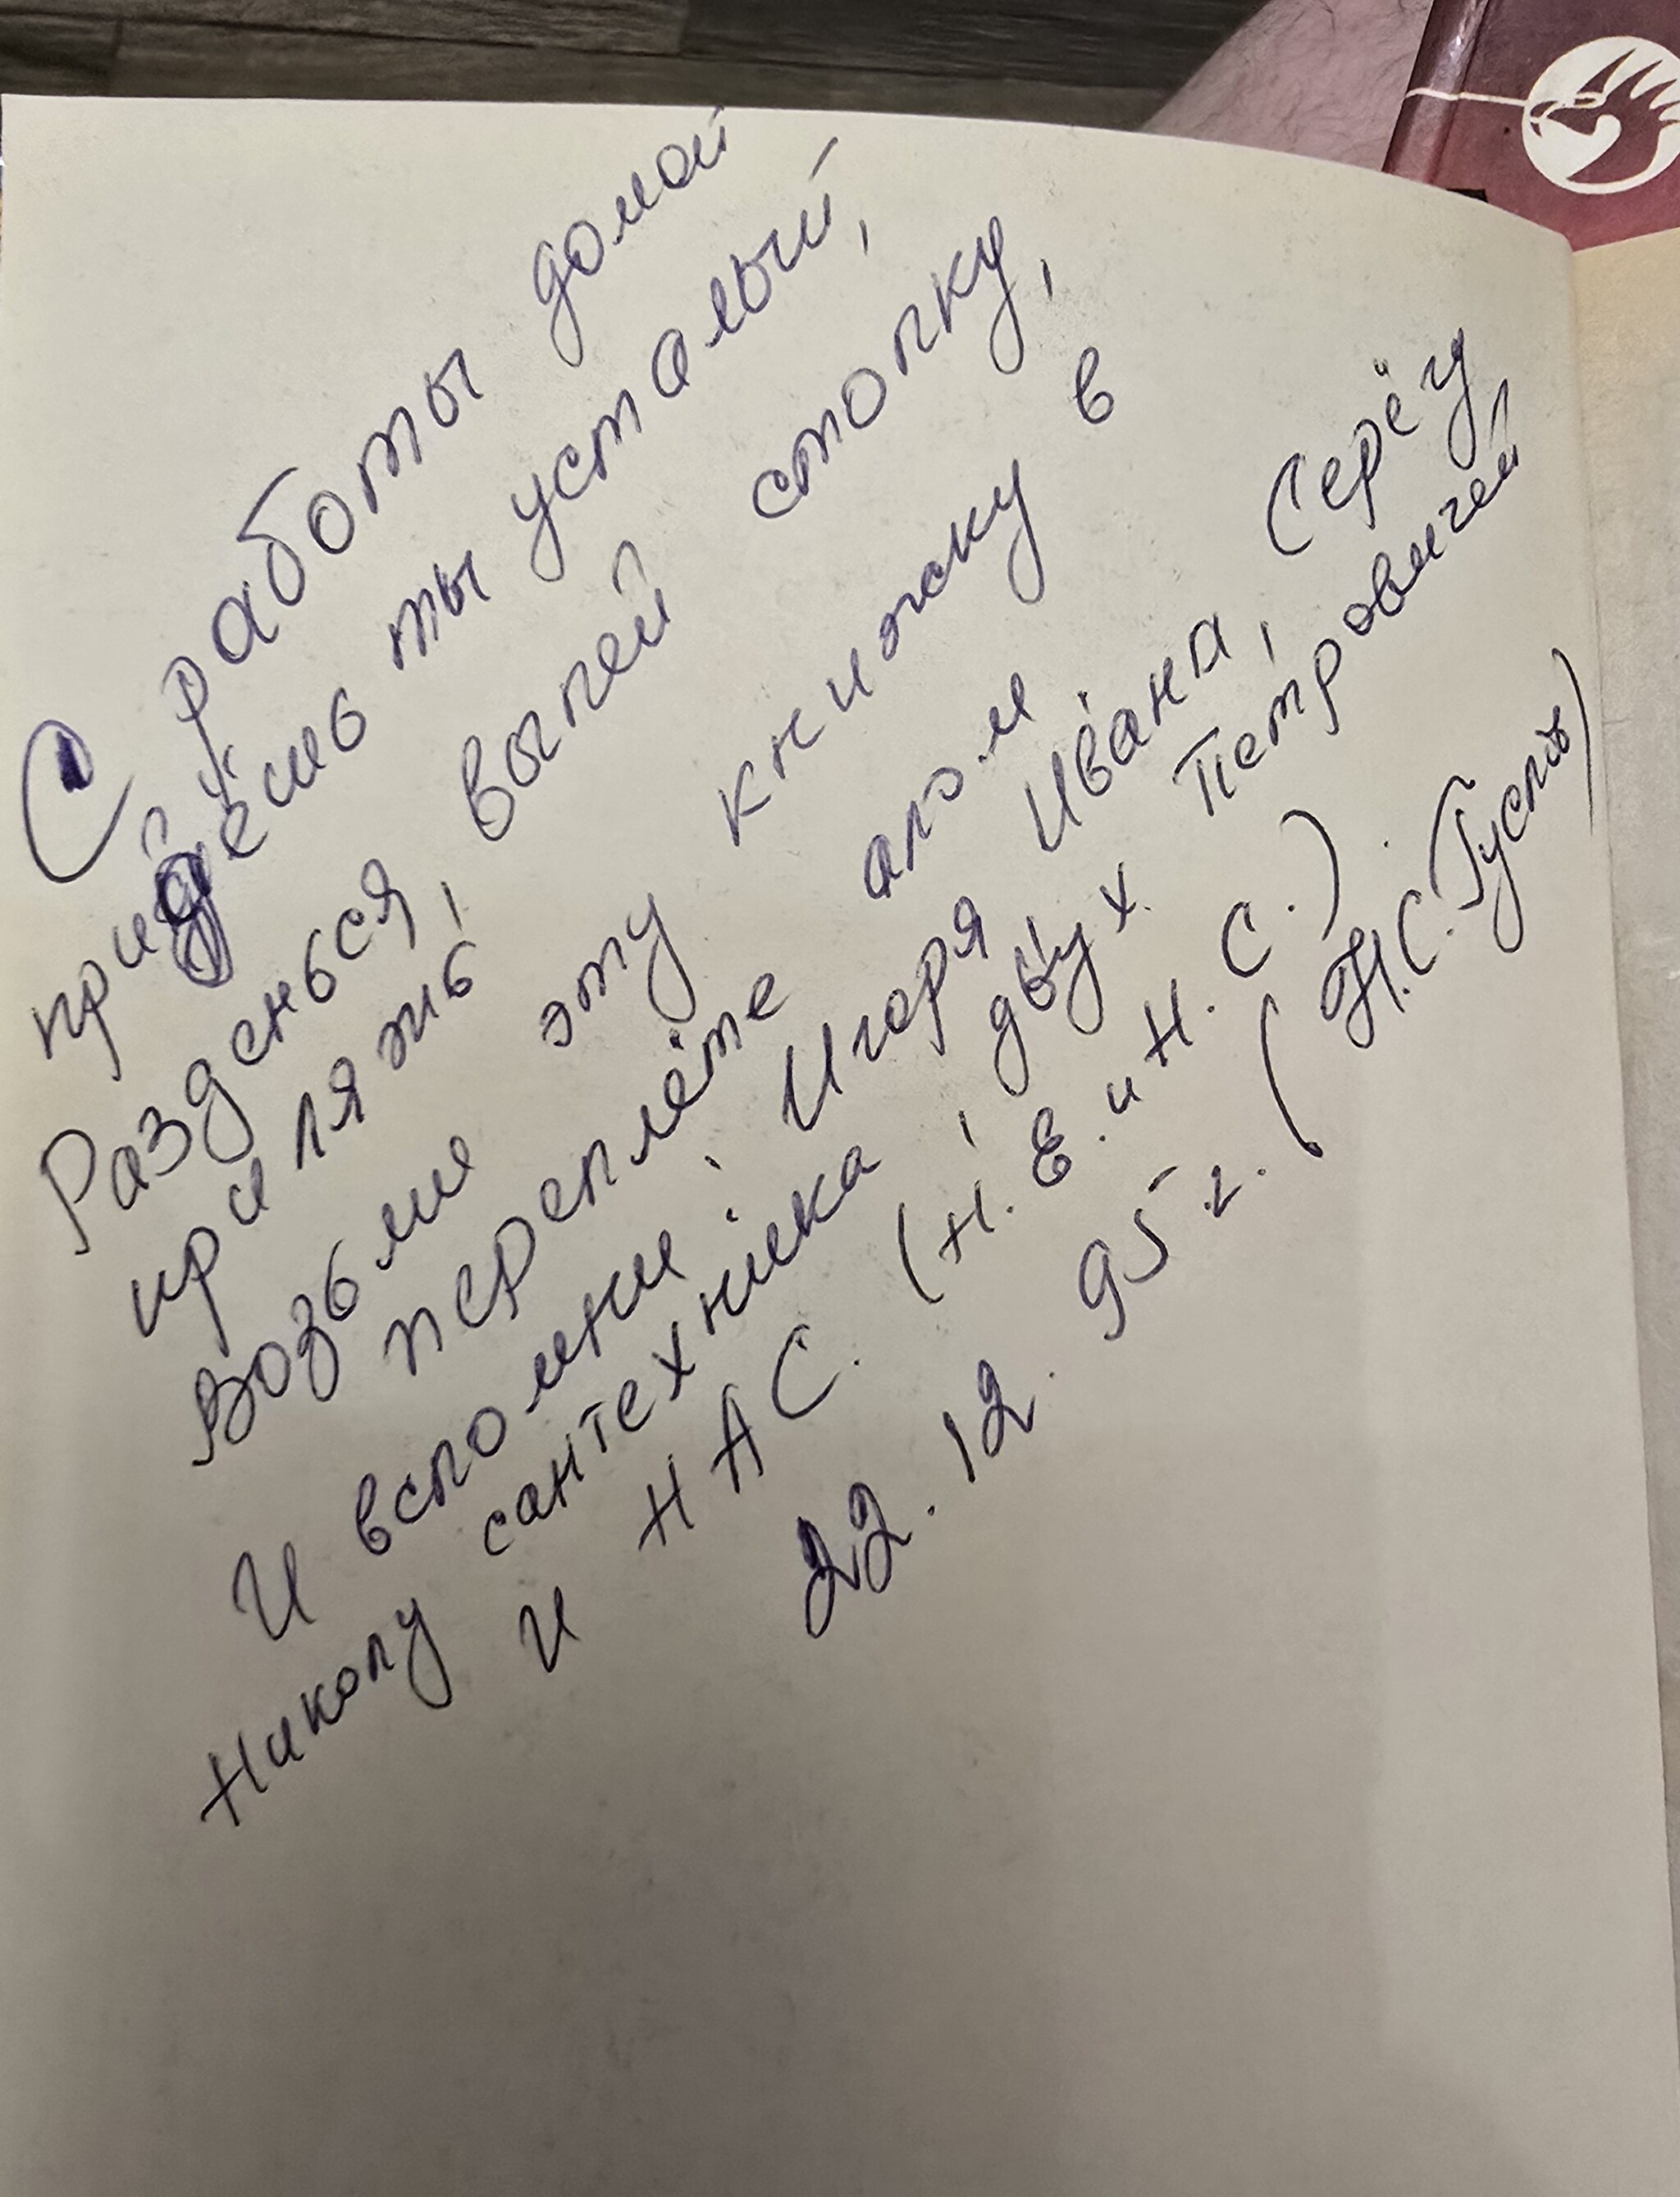 С работы домой
придёшь ты усталый,
Разденься, выпей стопку,
приляжь,
возьми эту книжку в
переплёте алом
И вспомни Игоря Ивана, Серёгу
Николу сантехника, двух Петровичей
и НАС. (Н. Е. и Н. С.)
22. 12. 95 г. (Н.С.)